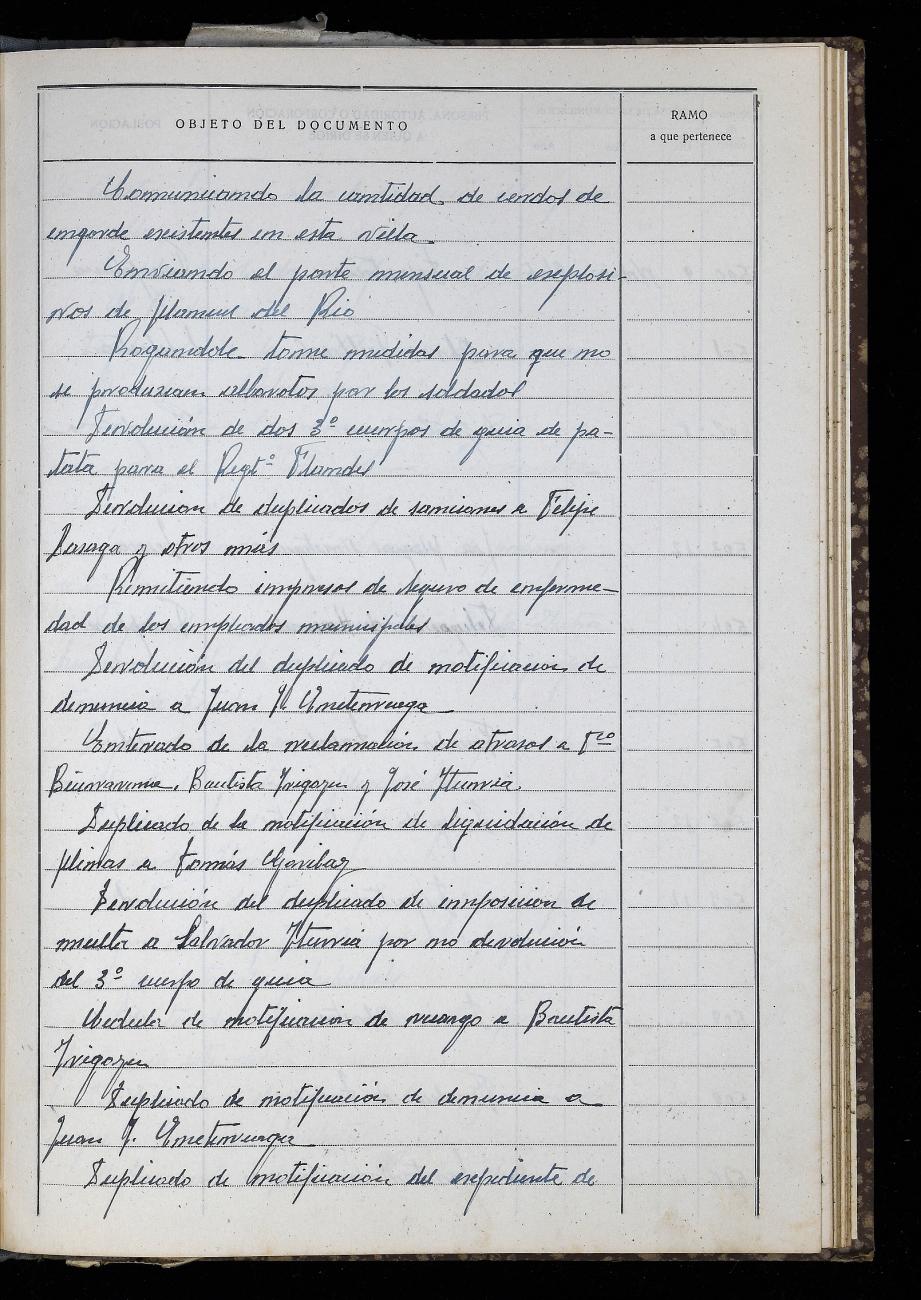 OBJETO DEL DOCUMENTO
RAMO
a que pertenece
Comunicando la cantidad de cerdos de
engorde existentes en esta villa.
Enviando el parte mensual de explosi-
vos de Manuel del Rio
Rogandole tome medidas para que no
se produzcan alborotos por los soldados
Devolución de dos 3º cuerpos de guia de pa-
tata para el Regtº Flandes
Devolucion de duplicados de sanciones a Felipe
Lasaga y otros más
Remitiendo impresos de seguro de enferme-
dad de los empleados municipales
Devolución del duplicado de notificacion de
denuncia a Juan J.
Enterado de la reclamación de atrasos a Fco
Bautista Irigoyen y José Iturria
Duplicado de la notificación de liquidación de
a Tomás Garibay
Devolución del duplicado de imposicion de
multa a Salvador Iturria por no devolución
del 3º cuerpo de guia
Cedula de notificacion de recargo a Bautista
Irigoyen
Duplicado de notificación de denuncia a
Juan J.
Duplicado de notificación del expediente de